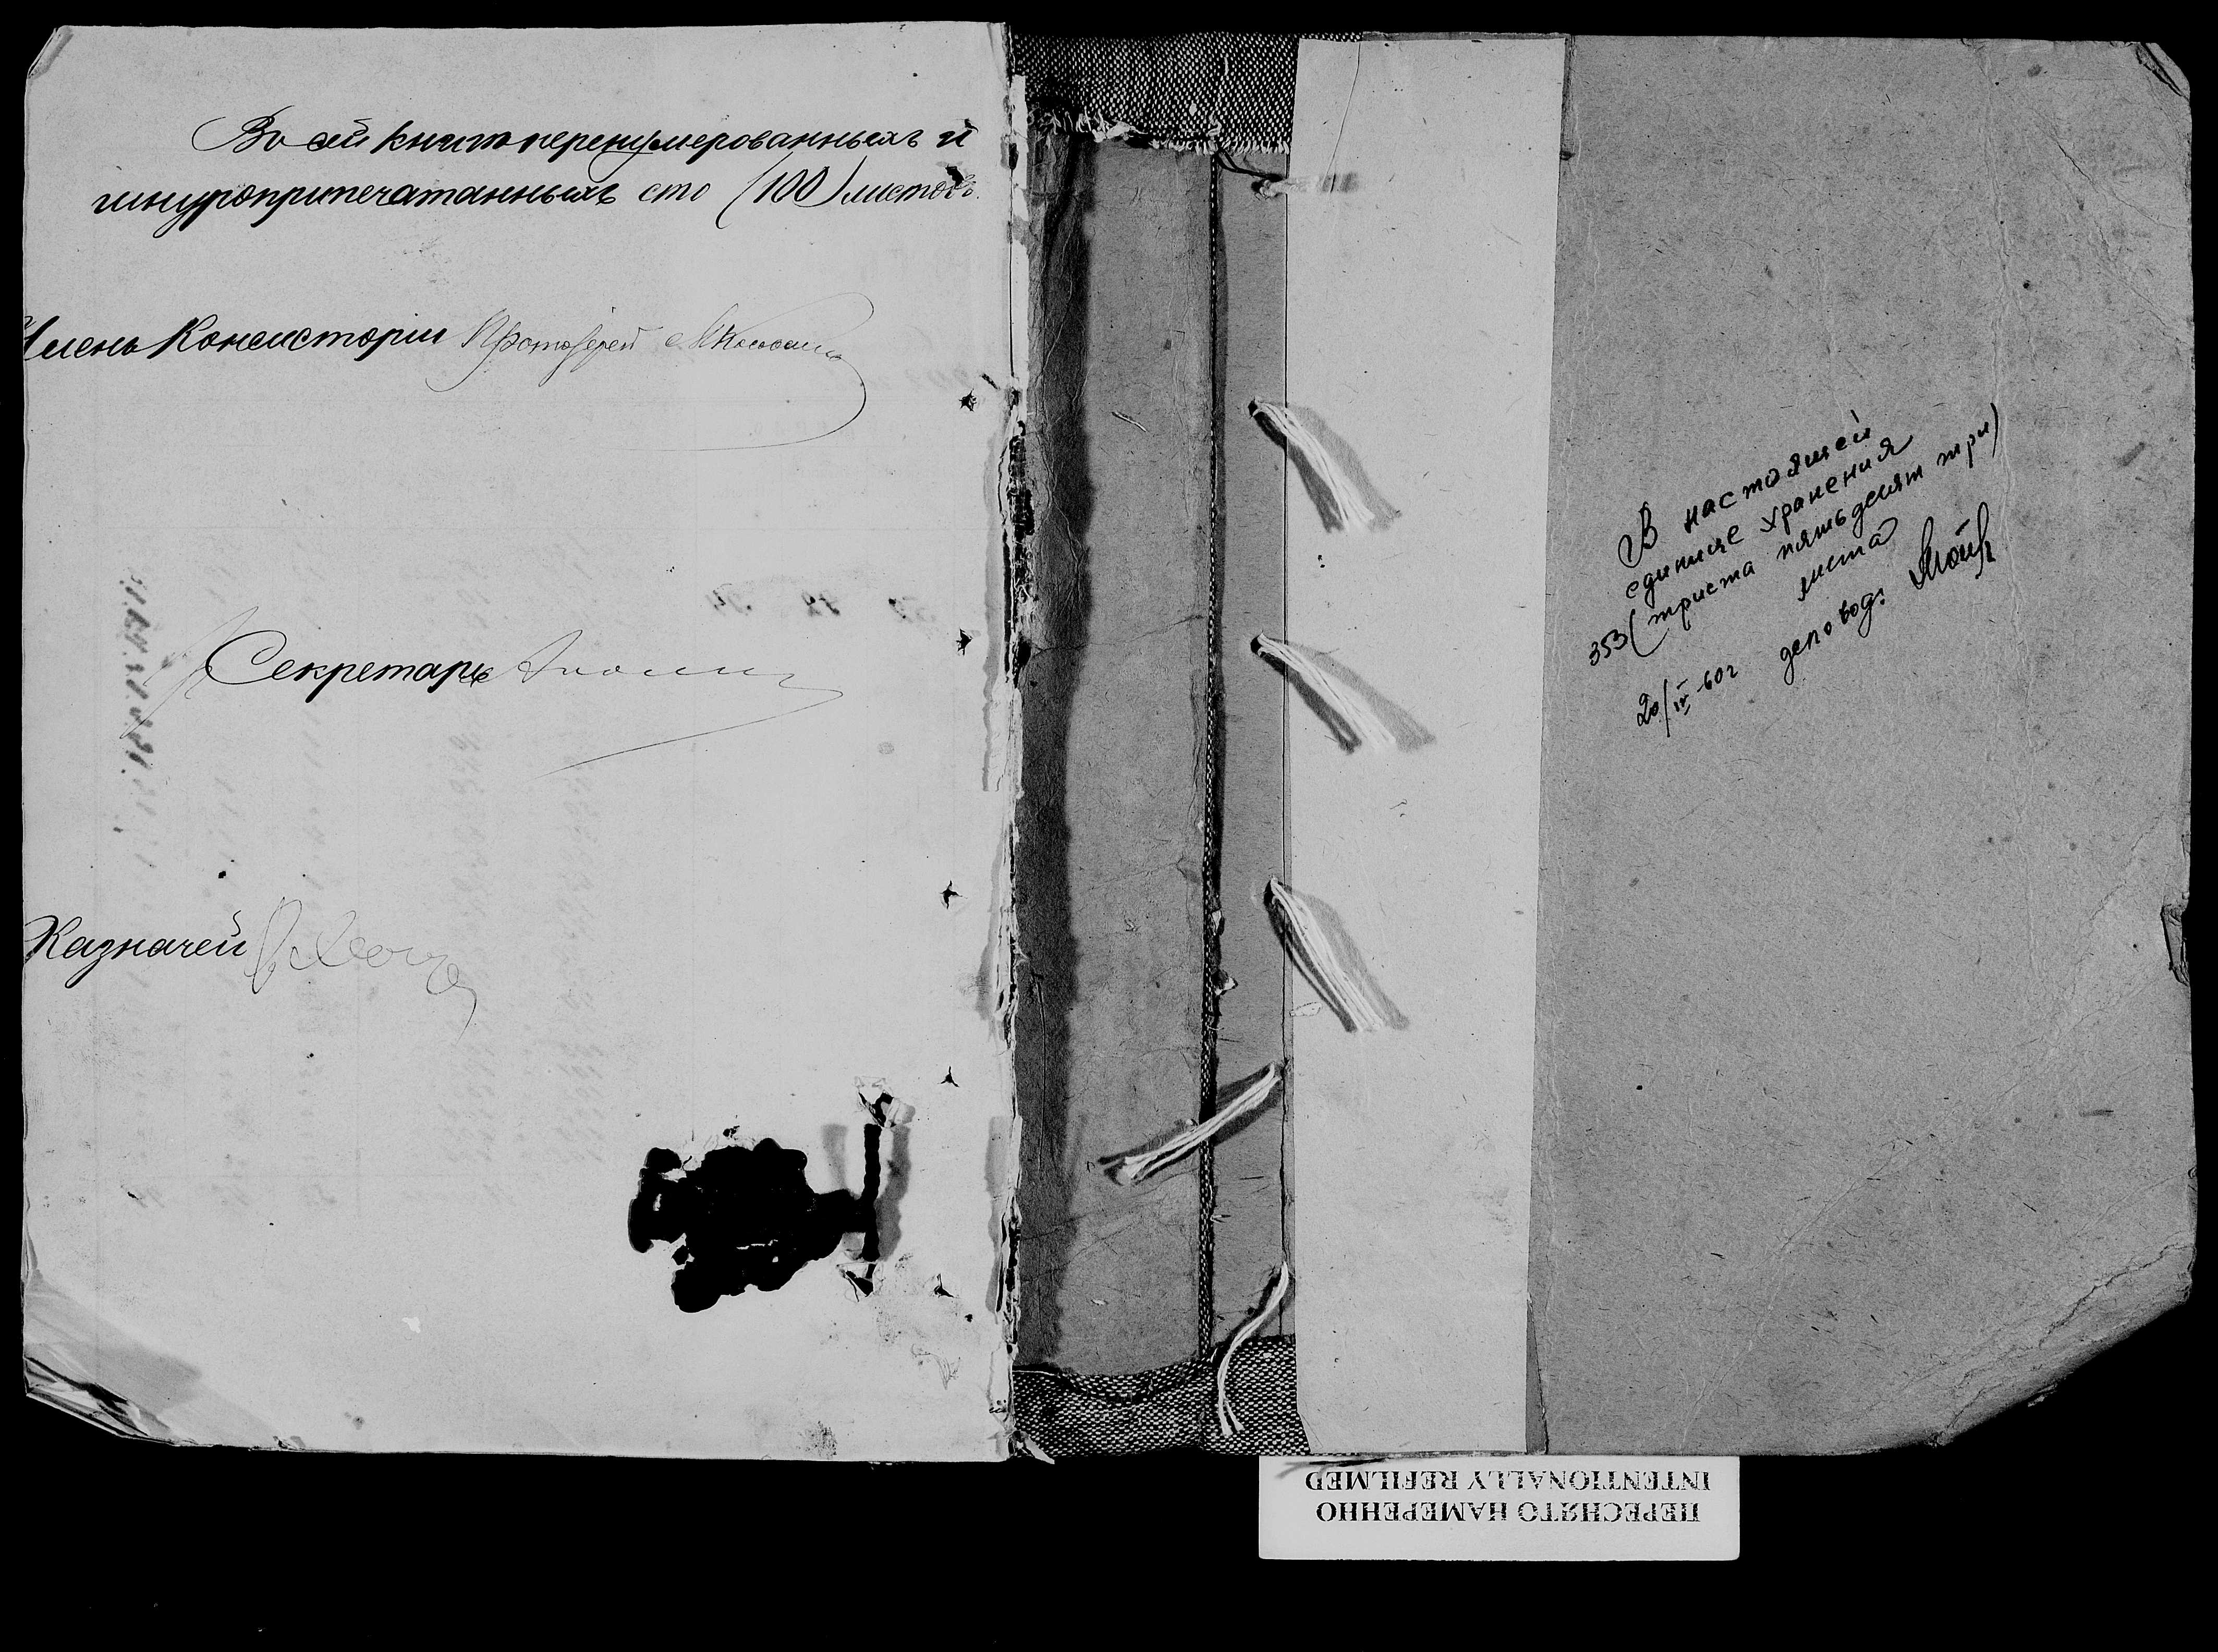 Во сей книгѣ перенумерованныхъ и
шнуроприпечатанныхъ сто (100) листовъ.
Членъ Консисторіи Протоіерей
Секретарь
Казначей
В настоящей
единице хранения
353 (триста пятьдесят три)
листа
20/IV-60г деловод:
ПЕРЕСНЯТО НАМЕРЕННО
INTENTIONALLY REFILMED